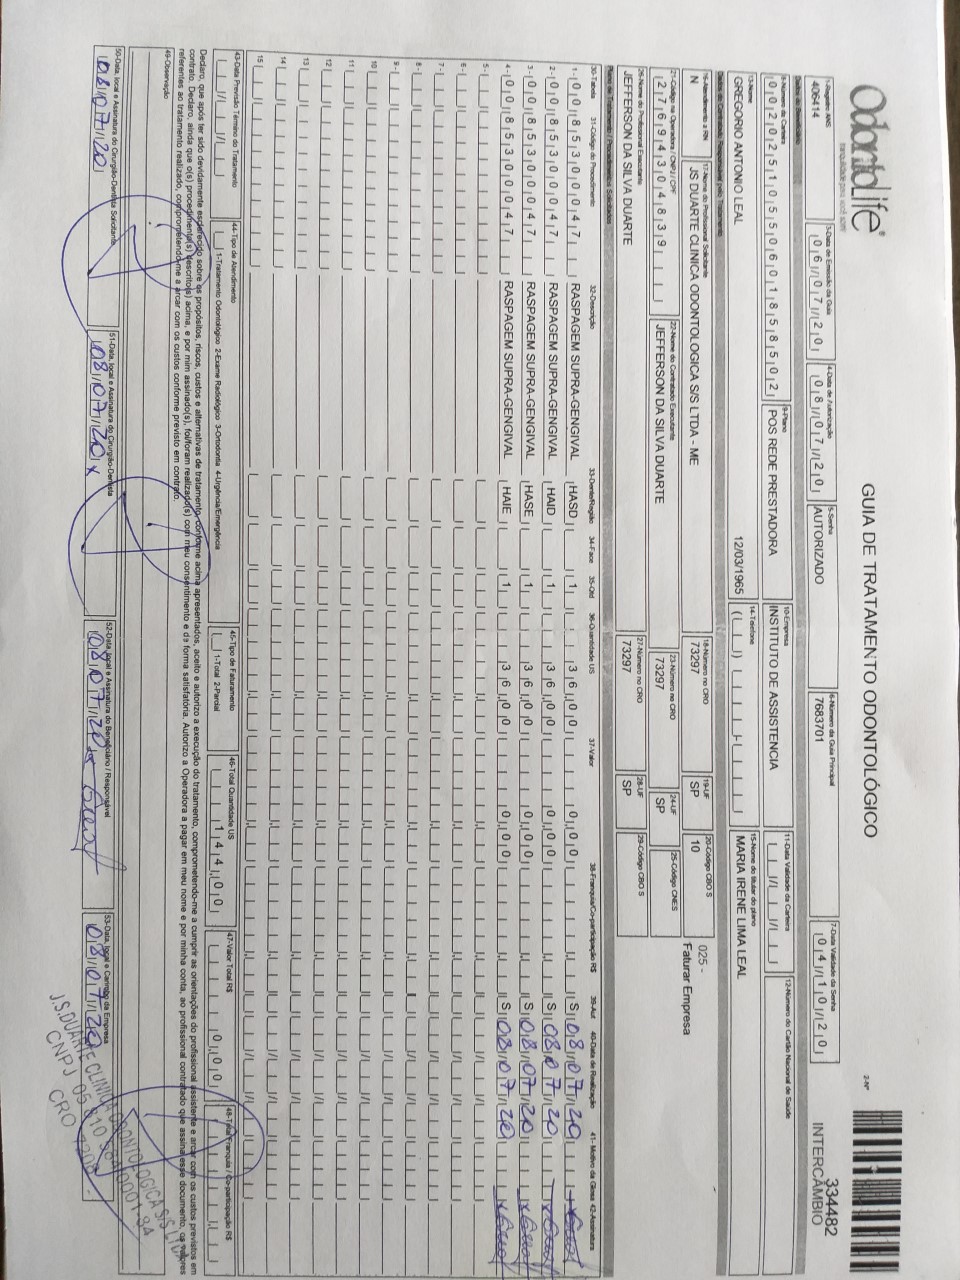 Odontolife®
tranquilidade para você sorrir
GUIA DE TRATAMENTO ODONTOLÓGICO
2-Nº
334482
INTERCÂMBIO
1-Registro ANS
406414
3-Data de Emissão da Guia
06/07/20
4-Data de Autorização
08/07/20
5-Senha
AUTORIZADO
6-Número da Guia Principal
7683701
7-Data Validade da Senha
04/10/20
Dados do Beneficiário
8-Número da Carteira
00202510550601858502
9-Plano
POS REDE PRESTADORA
10-Empresa
INSTITUTO DE ASSISTENCIA
11-Data Validade da Carteira
12-Número do Cartão Nacional de Saúde
13-Nome
GREGORIO ANTONIO LEAL
12/03/1965
14-Telefone
15-Nome do titular do plano
MARIA IRENE LIMA LEAL
Dados do Contratado Responsável pelo Tratamento
16-Atendimento a RN
N
17-Nome do Profissional Solicitante
JS DUARTE CLINICA ODONTOLOGICA S/S LTDA - ME
18-Número no CRO
73297
19-UF
SP
20-Código CBO S
10
025 -
Faturar Empresa
21-Código na Operadora / CNPJ / CPF
27694304839
22-Nome do Contratado Executante
JEFFERSON DA SILVA DUARTE
23-Número no CRO
73297
24-UF
SP
25-Código CNES
26-Nome do Profissional Executante
JEFFERSON DA SILVA DUARTE
27-Número no CRO
73297
28-UF
SP
29-Código CBO S
Plano de Tratamento / Procedimentos Solicitados
30-Tabela 31-Código do Procedimento 32-Descrição 33-Dente/Região 34-Face 35-Qtd 36-Quantidade US 37-Valor 38-Franquia/Co-participação R$ 39-Aut 40-Data de Realização 41- Motivo da Glosa 42-Assinatura
1- 00 85300047 RASPAGEM SUPRA-GENGIVAL HASD 1 36,00 0,00 S 08/07/20
2- 00 85300047 RASPAGEM SUPRA-GENGIVAL HAID 1 36,00 0,00 S 08/07/20
3- 00 85300047 RASPAGEM SUPRA-GENGIVAL HASE 1 36,00 0,00 S 08/07/20
4- 00 85300047 RASPAGEM SUPRA-GENGIVAL HAIE 1 36,00 0,00 S 08/07/20
5-
6-
7-
8-
9-
10
11
12
13
14
15
43-Data Previsão Término do Tratamento
44-Tipo de Atendimento
1-Tratamento Odontológico 2-Exame Radiológico 3-Ortodontia 4-Urgência/Emergência
45-Tipo de Faturamento
1-Total 2-Parcial
46-Total Quantidade US
144,00
47-Valor Total R$
0,00
48-Total Franquia / Co-participação R$
Declaro, que após ter sido devidamente esclarecido sobre os propósitos, riscos, custos e alternativas de tratamento, conforme acima apresentados, aceito e autorizo a execução do tratamento, comprometendo-me a cumprir as orientações do profissional assistente e arcar com os custos previstos em
contrato. Declaro, ainda que o(s) procedimento(s) descrito(s) acima, e por mim assinado(s), foi/foram realizado(s) com meu consentimento e de forma satisfatória. Autorizo a Operadora a pagar em meu nome e por minha conta, ao profissional contratado que assina esse documento, os valores
referentes ao tratamento realizado, comprometendo-me a arcar com os custos conforme previsto em contrato.
49-Observação
50-Data, local e Assinatura do Cirurgião-Dentista Solicitante
08/07/20
51-Data, local e Assinatura do Cirurgião-Dentista
08/07/20 x
52-Data, local e Assinatura do Beneficiário / Responsável
08/07/20 x
53-Data, local e Carimbo da Empresa
08/07/20
J.S.DUARTE CLINICA ODONTOLOGICA S/S LTDA
CNPJ 05
CRO